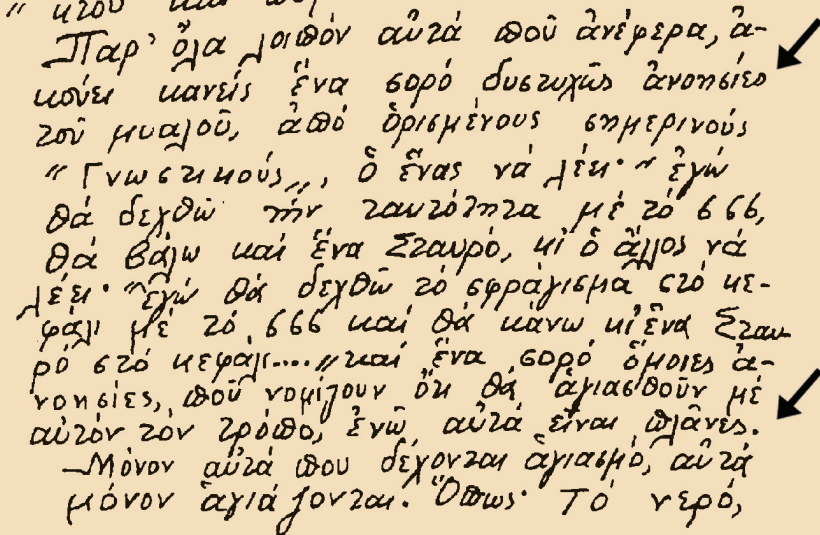 Παρ' ὅλα λοιπόν αὐτά ποῦ ἀνέφερα, ἀ-
κούει κανείς ἕνα σορό δυστυχῶς ἀνοησίες
τοῦ μυαλοῦ, ἀπό ὁρισμένους σημερινούς
"Γνωστικούς„, ὁ ἕνας νά λέει· "ἐγώ
θά δεχθῶ τήν ταυτότητα μέ τό 666,
θά βάλω καί ἕνα Σταυρό, κι ὁ ἄλλος νά
λέει· "ἐγώ θά δεχθῶ τό σφράγισμα στό κε-
φάλι μέ τό 666 καί θά κάνω κι ἕνα Σταυ-
ρό στό κεφάλι....„ καί ἕνα σορό ὅμοιες ἀ-
νοησίες, ποῦ νομίζουν ὅτι θά ἁγιασθοῦν μέ
αὐτόν τόν τρόπο, ἐνῶ αὐτά εἶναι πλάνες.
Μόνον αὐτά που δέχονται ἁγιασμό, αὐτά
μόνον ἁγιάζονται. Ὅπως· Τό νερό,